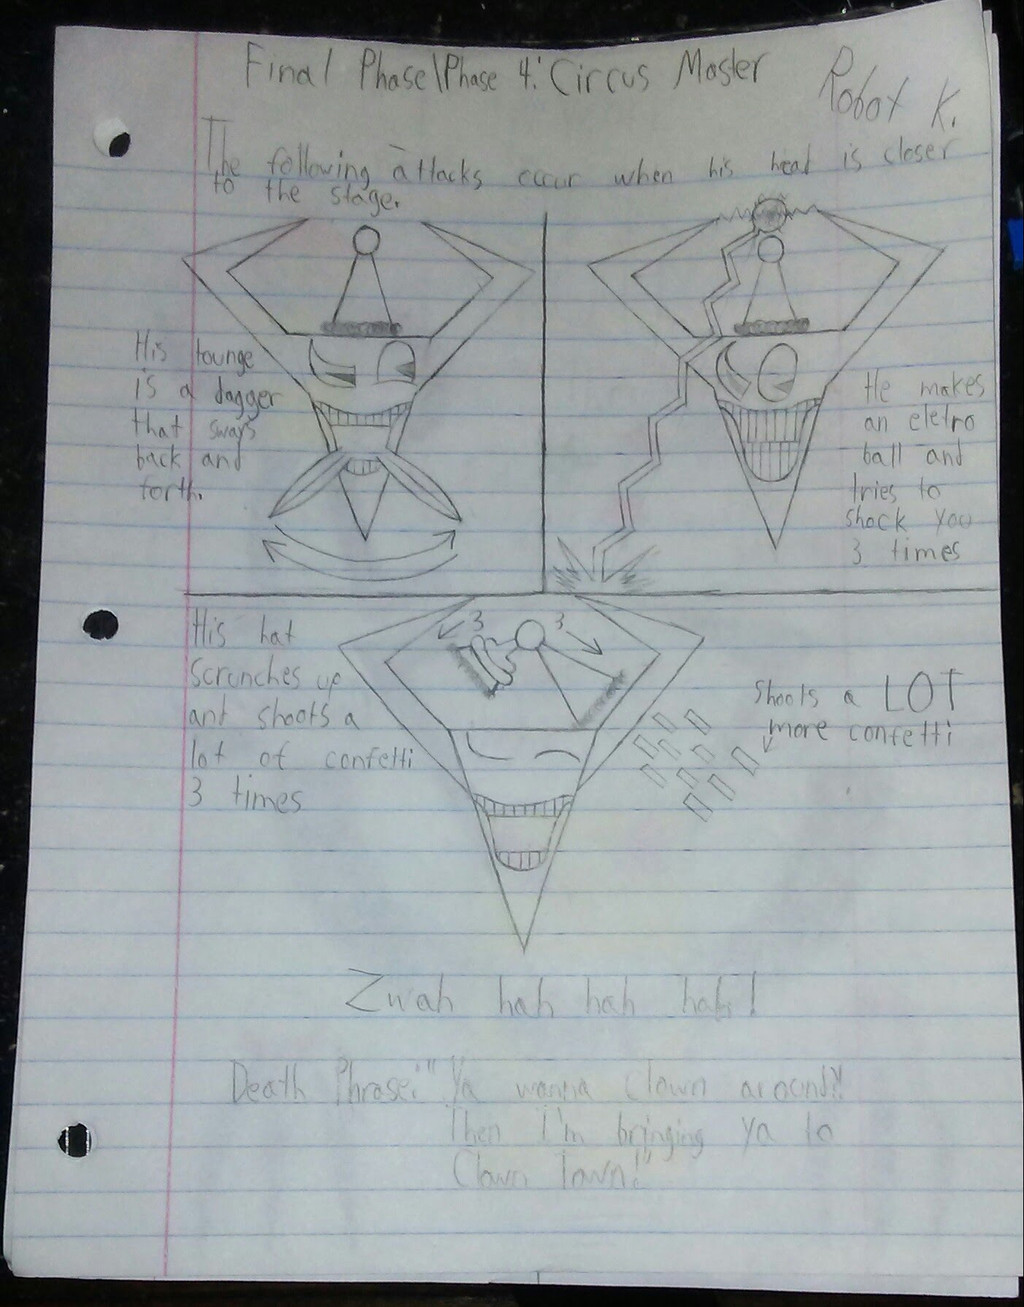 Final Phase\Phase 4: Circus Master
Robot K.
The following attacks occur when his head is closer
to the stage.
His tounge
is a dagger
that sways
back and
forth.
He makes
an eletro
ball and
tries to
shock you
3 times
His hat
scrunches up
ant shoots a
lot of confetti
3 times
3
3
Shoots a LOT
more confetti
Zwah hah hah hah!
Death Phrase: "Ya wanna clown around?!
Then I'm bringing ya to
Clown Town!"